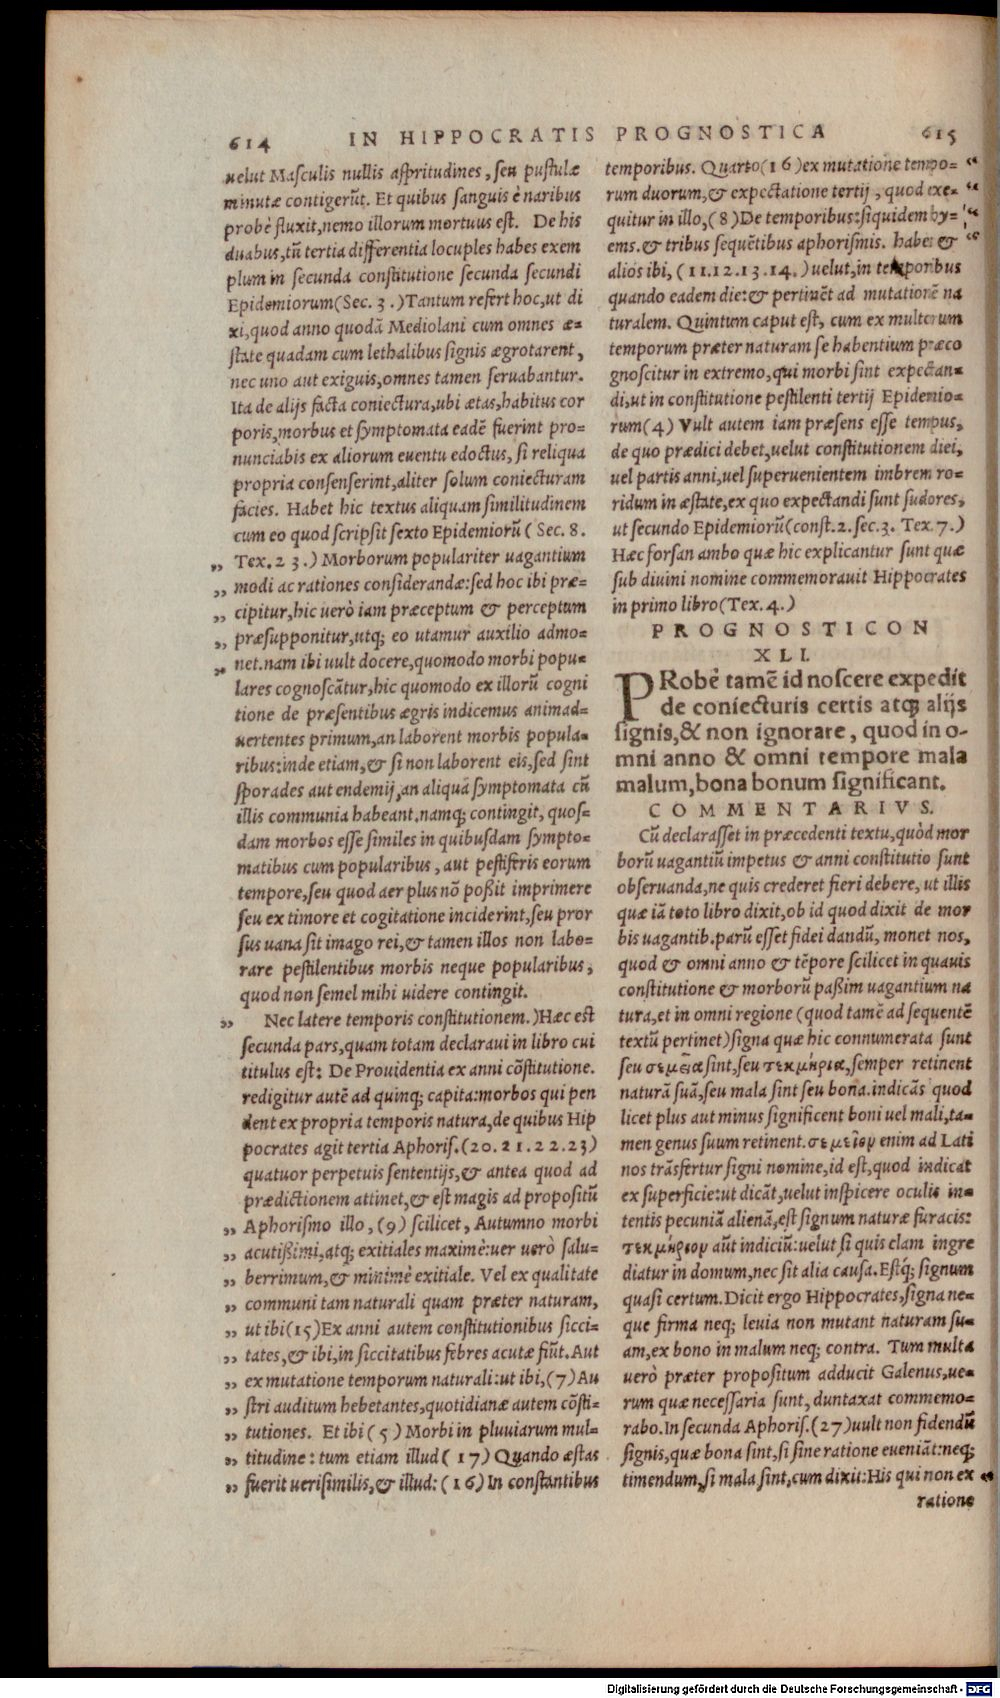 614 IN HIPPOCRATIS PROGNOSTICA 615
uelut Masculis nullis aſpritudines, ſeu puſtulæ
minutæ contigerũt. Et quibus ſanguis è naribus
probè fluxit,nemo illorum mortuus eſt. De his
duabus,tũ tertia differentia locuples habes exem
plum in ſecunda conſtitutione ſecunda ſecundi
Epidemiorum(Sec. 3.)Tantum refert hoc,ut di
xi,quod anno quodã Mediolani cum omnes æ=
ſtate quadam cum lethalibus ſignis ægrotarent,
nec uno aut exiguis,omnes tamen ſeruabantur.
Ita de alijs facta coniectura,ubi ætas,habitus cor
poris,morbus et ſymptomata eadẽ fuerint pro=
nunciabis ex aliorum euentu edoctus, ſi reliqua
propria conſenſerint,aliter ſolum coniecturam
facies. Habet hic textus aliquam ſimilitudinem
cum eo quod ſcripſit ſexto Epidemiorũ ( Sec. 8.
„ Tex. 2 3.) Morborum populariter uagantium
„ modi ac rationes conſiderandæ:ſed hoc ibi præ=
„ cipitur,hic uerò iam præceptum & perceptum
„ præſupponitur,utq; eo utamur auxilio admo=
„ net.nam ibi uult docere,quomodo morbi popu=
lares cognoſcãtur,hic quomodo ex illorũ cogni
tione de præſentibus ægris indicemus animad=
uertentes primum,an laborent morbis popula=
ribus:inde etiam,& ſi non laborent eis,ſed ſint
ſporades aut endemij,an aliquã ſymptomata cũ
illis communia habeant.namq; contingit, quoſ=
dam morbos eſſe ſimiles in quibuſdam ſympto=
matibus cum popularibus, aut peſtiferis eorum
tempore,ſeu quod aer plus nõ poßit imprimere
ſeu ex timore et cogitatione inciderint,ſeu pror
ſus uana ſit imago rei,& tamen illos non labo=
rare peſtilentibus morbis neque popularibus,
quod non ſemel mihi uidere contingit.
„ Nec latere temporis conſtitutionem.)Hæc eſt
ſecunda pars,quam totam declaraui in libro cui
titulus eſt: De Prouidentia ex anni cõſtitutione.
redigitur autẽ ad quinq; capita:morbos qui pen
dent ex propria temporis natura,de quibus Hip
pocrates agit tertia Aphoriſ.(20.21.22.23)
quatuor perpetuis ſententijs,& antea quod ad
prædictionem attinet,& eſt magis ad propoſitũ
„ Aphoriſmo illo, (9) ſcilicet, Autumno morbi
„ acutißimi,atq; exitiales maximè:uer uerò ſalu=
„ berrimum,& minimè exitiale. Vel ex qualitate
„ communi tam naturali quam præter naturam,
„ ut ibi(15)Ex anni autem conſtitutionibus ſicci=
„ tates,& ibi,in ſiccitatibus febres acutæ fiũt.Aut
„ ex mutatione temporum naturali:ut ibi,(7)Au
„ ſtri auditum hebetantes,quotidianæ autem cõſti=
„ tutiones. Et ibi( 5 ) Morbi in pluuiarum mul=
„ titudine : tum etiam illud( 17) Quando æſtas
„ fuerit ueriſimilis,& illud:(16)In conſtantibus
temporibus. Quarto(16)ex mutatione tempo= “
rum duorum,& expectatione tertij, quod exe= “
quitur in illo,(8)De temporibus:ſiquidem hy= “
ems.& tribus ſequẽtibus aphoriſmis. habet & “
alios ibi, (11.12.13.14.)uelut,in temporibus
quando eadem die:& pertinẽt ad mutationẽ na
turalem. Quintum caput eſt, cum ex multorum
temporum præter naturam ſe habentium præco
gnoſcitur in extremo,qui morbi ſint expectan=
di,ut in conſtitutione peſtilenti tertij Epidemio=
rum(4) Vult autem iam præſens eſſe tempus,
de quo prædici debet,uelut conſtitutionem diei,
uel partis anni,uel ſuperuenientem imbrem ro=
ridum in æſtate,ex quo expectandi ſunt ſudores,
ut ſecundo Epidemiorũ(conſt.2.ſec.3. Tex.7.)
Hæc forſan ambo quæ hic explicantur ſunt quæ
ſub diuini nomine commemorauit Hippocrates
in primo libro(Tex.4.)
PROGNOSTICON
XLI.
PRobè tamẽ id noſcere expedit
de coniecturis certis atq; alijs
ſignis,& non ignorare, quod in o-
mni anno & omni tempore mala
malum,bona bonum ſignificant.
COMMENTARIVS.
Cũ declaraſſet in præcedenti textu,quòd mor
borũ uagantiũ impetus & anni conſtitutio ſunt
obſeruanda,ne quis crederet fieri debere, ut illis
quæ iã toto libro dixit,ob id quod dixit de mor
bis uagantib.parũ eſſet fidei dandũ, monet nos,
quod & omni anno & tẽpore ſcilicet in quauis
conſtitutione & morborũ paßim uagantium na
tura,et in omni regione (quod tamẽ ad ſequentẽ
textũ pertinet)ſigna quæ hic connumerata ſunt
ſeu σεμεῖα ſint,ſeu τεκμήρια,ſemper retinent
naturã ſuã,ſeu mala ſint ſeu bona.indicãs quod
licet plus aut minus ſignificent boni uel mali,ta=
men genus ſuum retinent.σεμεῖον enim ad Lati
nos trãsfertur ſigni nomine,id eſt,quod indicat
ex ſuperficie:ut dicãt,uelut inſpicere oculis in=
tentis pecuniã alienã,eſt ſignum naturæ furacis:
τεκμήριον aũt indiciũ:uelut ſi quis clam ingre
diatur in domum,nec ſit alia cauſa.Eſtq́; ſignum
quaſi certum.Dicit ergo Hippocrates,ſigna ne=
que firma neq; leuia non mutant naturam ſu=
am,ex bono in malum neq; contra. Tum multa
uerò præter propoſitum adducit Galenus,ue=
rum quæ neceſſaria ſunt, duntaxat commemo=
rabo.In ſecunda Aphoriſ.(27)uult non fidendũ
ſignis,quæ bona ſint,ſi ſine ratione eueniãt:neq;
timendum,ſi mala ſint,cum dixit:His qui non ex “
ratione
Digitalisierung gefördert durch die Deutsche Forschungsgemeinschaft - DFG